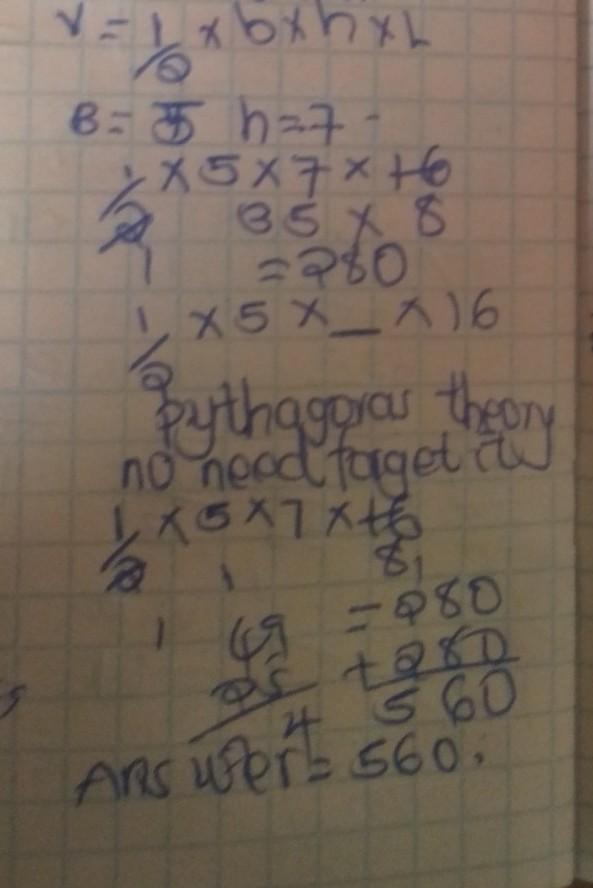 V = 1/2 × b × h × L
B = 5 h = 7
1/2 × 5 × 7 × 16
35 × 8
1 = 280
1/2 × 5 × _ × 16
pythagoras theory
no need
1/2 × 5 × 7 × 16
8
1 49 = 280
25 + 280
4 560
Answer = 560.